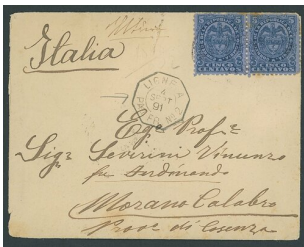 Italia
LIGNE A
4
91
PAQ. FR. N° 2
Egr. Prof.r
Sig.r Severini Vincenzo
fu Ferdinando
Morano Calabro
Prov. di Cosenza